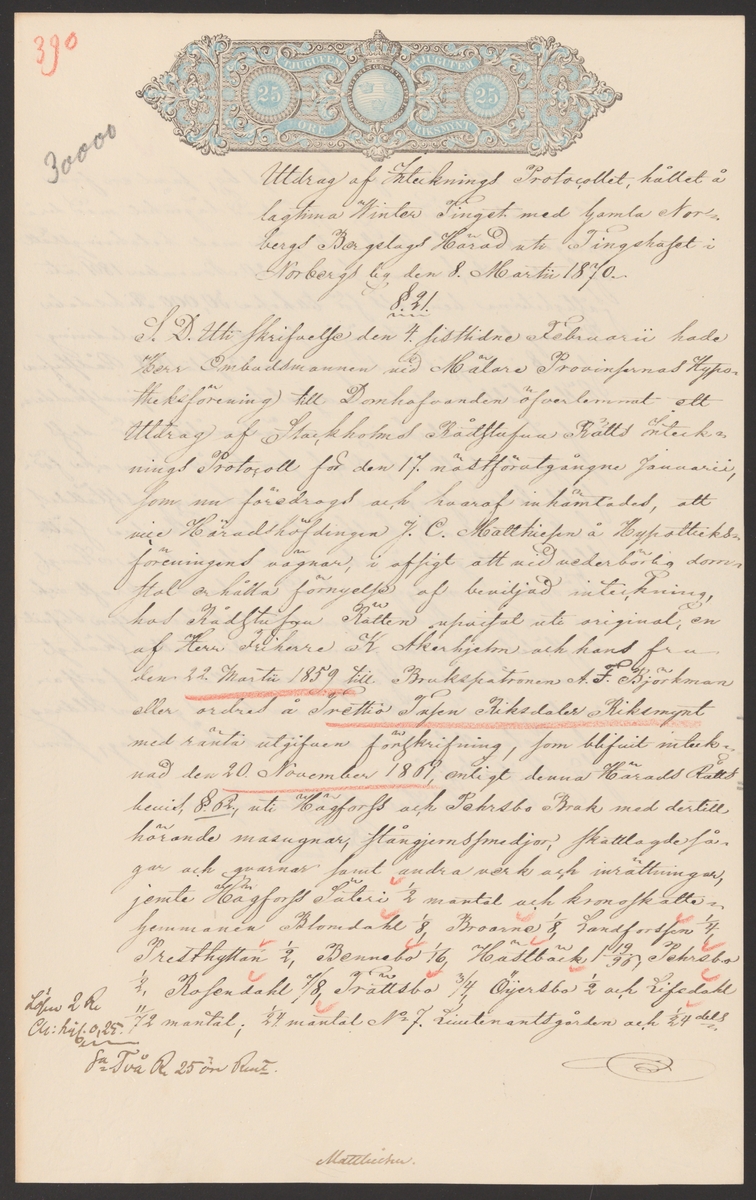 390
30000
TJUGUFEM TJUGUFEM
25 25
ÖRE RIKSMYNT
Utdrag af Intecknings Protocollet, hållet å
lagtima Winter Tinget med Gamla Nor-
bergs Bergslags Härad uti Tingshuset i
Norbergs by den 8. Martii 1870.
§. 21.
S. D. Uti skrifvelse den 4. sistlidne Februarii hade
Herr Ombudsmannen vid Mälare Provinsernas Hypo-
theksförening till Domhafvanden öfverlemnat ett
Utdrag af Stockholms Rådstufvu Rätts Inteck-
nings Protocoll för den 17. nästförutgångne Januarii,
som nu föredrogs och hvaraf inhämtades, att
vice Häradshöfdingen J. C. Matthiesen å Hypotheks-
föreningens vägnar, i afsigt att vid vederbörlig dom-
stol erhålla förnyelse af beviljad inteckning,
hos Rådstufvu Rätten upvisat uti original, en
af Herr Friherre Åkerhjelm och hans fru
den 22. Martii 1859 till Brukspatronen A. F. Björkman
eller ordres å Trettio Tusen Riksdaler Riksmynt
med ränta utgifven förskrifning, som blifvit inteck-
nad den 20. November 1861, enligt denna Härads Rätts
bevis, §. 62, uti Högforss och Pehrsbo Bruk med dertill
hörande masugnar, stångjernssmedjor, skattlagde så-
gar och qvarnar samt andra verk och inrättningar,
jemte Högforss Säteri 1/2 mantal och kronoskatte-
hemmanen Blomdahl 1/8, Broarne 1/8, Landforssen 1/4,
Presthyttan 1/2, Bennebo 1/6, Hästbäck 1 19/96, Pehrsbo
1/2, Rosendahl 7/8, Trättsbo 3/4, Öijersbo 1/2 och Lifsdahl
11/72 mantal; 24 mantal No 7. Lieutenantsgården och 1/24 dels
Lösen 2 R
Ch: 0,25.
Sa Två R 25 öre Rmt.
Matthiesen.